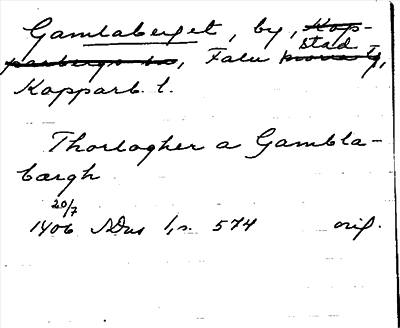 Gamlaberget, by, Kop-
parbergs sn, Falu stad,
Kopparb. l.
Thorlagher a Gambla-
bærgh
20/7
1406 SDns 1, s. 574 orig.